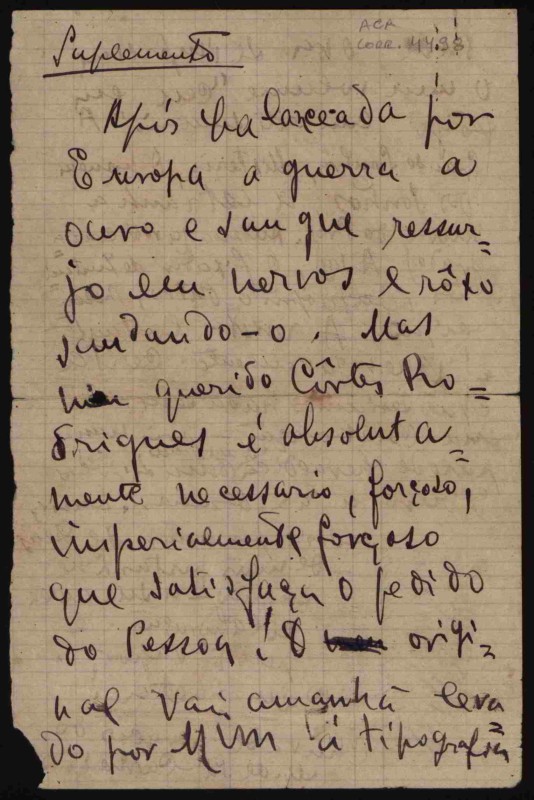 ACR
CORR. 4498
Suplemento
Após balanceada por
Europa a guerra a
ouro e sangue ressur=
jo em nervos e rôxo
saudando-o. Mas
meu querido Côrtes Ro=
drigues é absoluta=
mente necessario, forçoso,
imperialmente forçoso
que satisfaça o pedido
do Pessoa! O origi=
nal vai amanhã leva=
do por MIM á tipografia